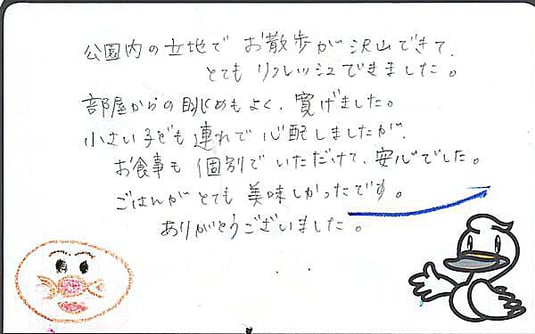 公園内の立地で お散歩が沢山できて、
とても リフレッシュできました。
部屋からの眺めもよく、寛げました。
小さい子ども連れで心配しましたが、
お食事も個別でいただけて、安心でした。
ごはんがとても美味しかったです。
ありがとうございました。